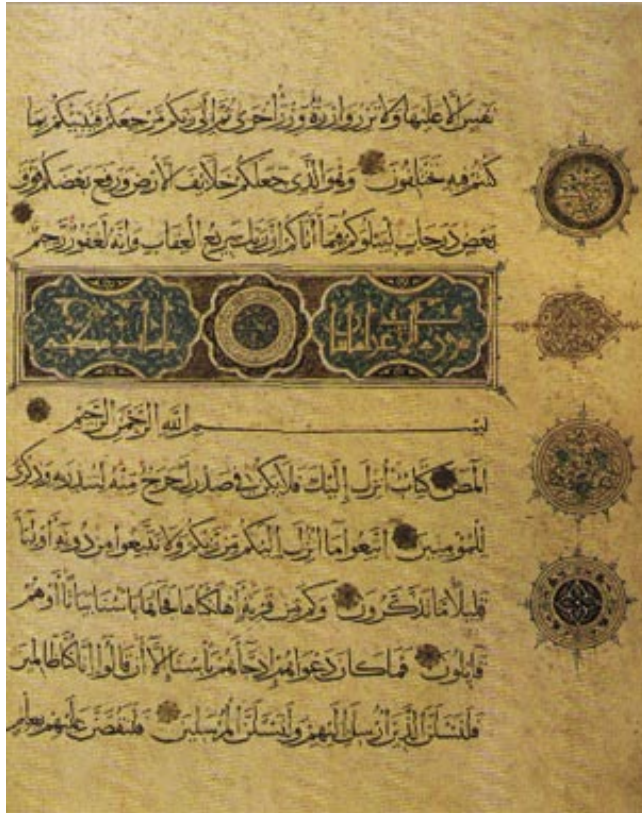 نفس الا عليها ولا تزر وازرة وزر أخرى ثم الى ربكم مرجعكم فينبئكم بما
كنتم فيه تختلفون وهو الذي جعلكم خلائف الأرض ورفع بعضكم فوق
بعض درجات ليبلوكم فيما آتاكم ان ربك سريع العقاب وانه لغفور رحيم
بسم الله الرحمن الرحيم
المص كتاب أنزل إليك فلا يكن في صدرك حرج منه لتنذر به وذكرى
للمؤمنين اتبعوا ما انزل إليكم من ربكم ولا تتبعوا من دونه أولياء
قليلا ما تذكرون وكم من قرية أهلكناها فجاءها بأسنا بياتا أو هم
قائلون فما كان دعواهم إذ جاءهم بأسنا إلا أن قالوا إنا كنا ظالمين
فلنسئلن الذين أرسل إليهم ولنسئلن المرسلين فلنقصن عليهم بعلم